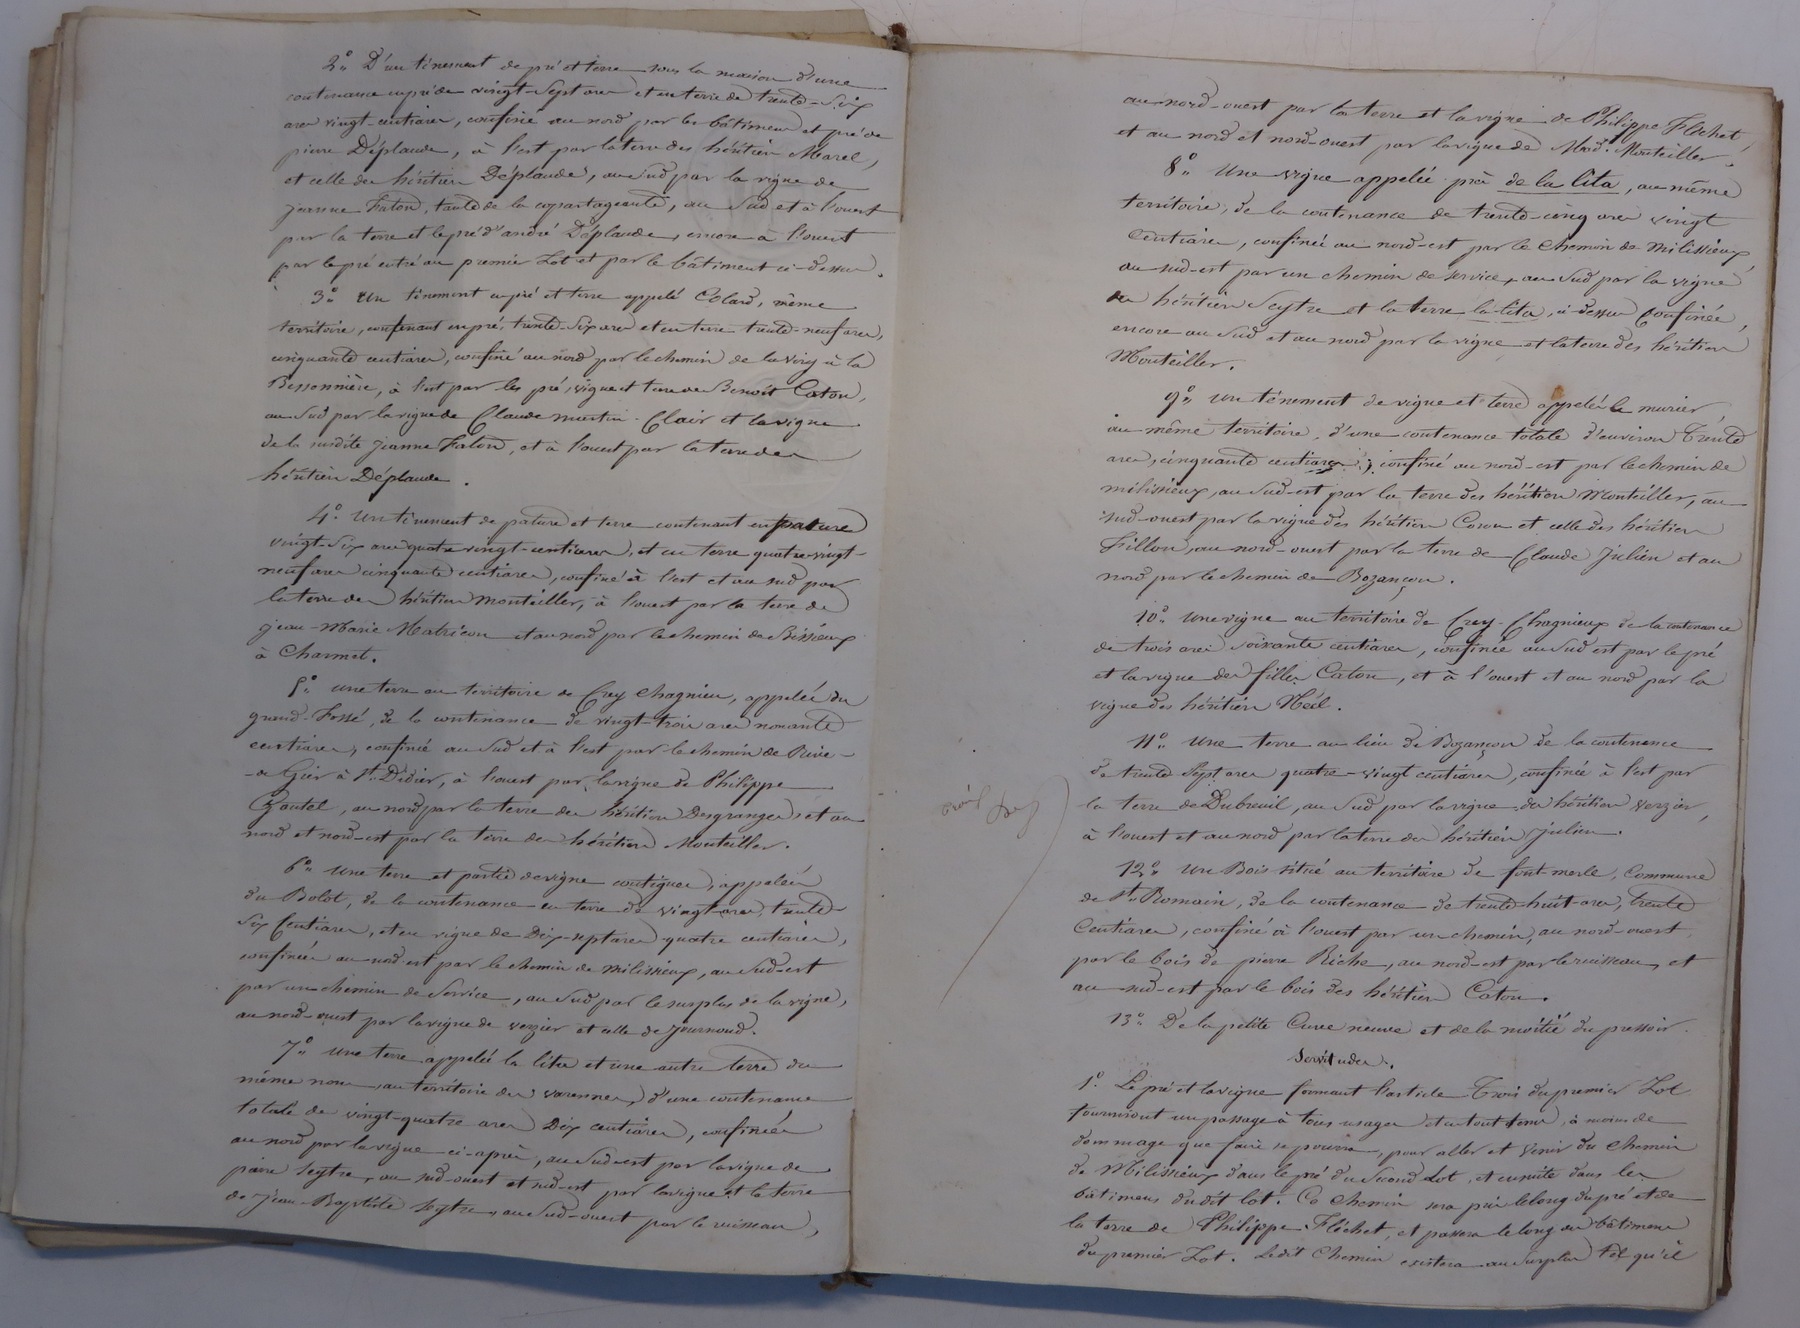 2° D'un tènement de pré et terre sous la maison d'une
contenance en pré de vingt-sept ares et en terre de trente-six
ares vingt centiares, confiné au nord par les bâtiments et pré de
pierre Déplaude, à l'est par la terre des héritiers Marel,
et celle des héritiers Déplaude, au sud par la vigne de
jeanne Faton, tante de la copartageante, au sud et à l'ouest
par la terre et le pré d'andré Déplaude, encore à l'ouest
par le pré entré au premier Lot et par le bâtiment ci-dessus.
3° Un tènement en pré et terre appelé Colard, même
territoire, contenant en pré, trente-six ares et en terre trente-neuf ares,
cinquante centiares, confiné au nord par le chemin de la à la
Bessonnière, à l'est par les pré, vigne et terre de Benoit Caton,
au sud par la vigne de Claude martin-Clair et la vigne
de la susdite jeanne Faton, et à l'ouest par la terre des
héritiers Déplaude.
4° Un tènement de pature et terre contenant en pature
vingt-six ares quatre-vingt-centiares, et en terre quatre-vingt-
neuf ares cinquante centiares, confiné à l'est et au sud par
la terre des héritiers Monteiller, à l'ouest par la terre de
jean-Marie Matricon et au nord par le chemin de Bissieux
à Charmet.
5° une terre au territoire de Crey Chagnieu, appelée du
grand-Fossé, de la contenance de vingt-trois ares nonante
centiares, confinée au sud et à l'est par le chemin de Rive-
-de Gier à St. Didier, à l'ouest par la vigne de Philippe
Gautel, au nord par la terre des héritiers Desgranges et au
nord et nord-est par la terre des héritiers Monteiller.
6° Une terre et partie de vigne contigues, appelées
du Bolot, de la contenance en terre de vingt ares, trente-
six Centiares, et en vigne de Dix-sept ares quatre centiares,
confinées au nord-est par le chemin de milissieux, au sud-est
par un chemin de Service, au sud par le surplus de la vigne,
au nord-ouest par la vigne de verzier et celle de Journoud.
7° une terre appelée la lita et une autre terre du
même nom au territoire des varennes, d'une contenance
totale de vingt-quatre ares Dix centiares, confinées
au nord par la vigne ci-après, au sud-est par la vigne de
pierre Seytre, au sud-ouest et sud-est par la vigne et la terre
de Jean-Baptiste Seytre, au sud-ouest par le ruisseau,
au nord-ouest par la terre et la vigne de Philippe Fléchet,
et au nord et nord-ouest par la vigne de Mad. Monteiller.
8° Une vigne appelée près de la lita, au même
territoire, de la contenance de trente-cinq ares vingt
Centiares, confinée au nord-est par le chemin de Milissieux,
au sud-est par un chemin de service, au sud par la vigne
des héritiers Seytre et la terre la lita, ci-dessus Confinée,
encore au sud et au nord par la vigne et la terre des héritiers
Monteiller.
9° un tènement de vigne et terre appelé le murier
au même territoire, d'une contenance totale d'environ Trente
ares, cinquante centiares; confiné au nord-est par le chemin de
milissieux, au sud-est par la terre des héritiers Monteiller, au
sud-ouest par la vigne des héritiers Coron et celle des héritiers
Fillon, au nord-ouest par la terre de Claude Julien et au
nord par le chemin de Bozançon.
10° Une vigne au territoire de Crey-Chagnieux de la contenance
de trois ares soixante centiares, confinée au sud est par le pré
et la vigne des filles Caton, et à l'ouest et au nord par la
vigne des héritiers Néel.
11° Une terre au lieu de Bozançon de la contenance
de trente sept ares quatre-vingt centiares, confinée à l'est par
la terre de Dubreuil, au sud par la vigne des héritiers verzier,
à l'ouest et au nord par la terre des héritiers Julien.
12° un Bois situé au territoire de font-merle, Commune
de St. Romain, de la contenance de trente-huit ares, trente
Centiares, confiné à l'ouest par un chemin, au nord-ouest
par le bois de pierre Riche, au nord-est par le ruisseau, et
au sud-est par le bois des héritiers Caton.
13° De la petite Cuve neuve et de la moitié du pressoir.
Servitudes.
1° Le pré et la vigne formant l'article Trois du premier Lot
fourniront un passage à tous usages et en tout tems, à moins de
dommage que faire se pourra, pour aller et venir du chemin
de Milissieux dans le pré du Second Lot, et ensuite dans les
bâtimens du dit lot. Ce chemin sera pris le long du pré et de
la terre de Philippe Fléchet, et passera le long des bâtimens
du premier Lot. Ledit Chemin existera au surplus tel qu'il